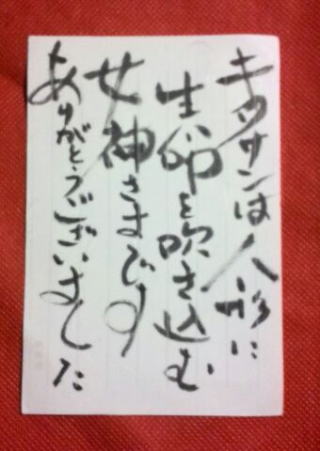 キタサンは人形に
生命を吹き込む
女神さまです
ありがとうございました